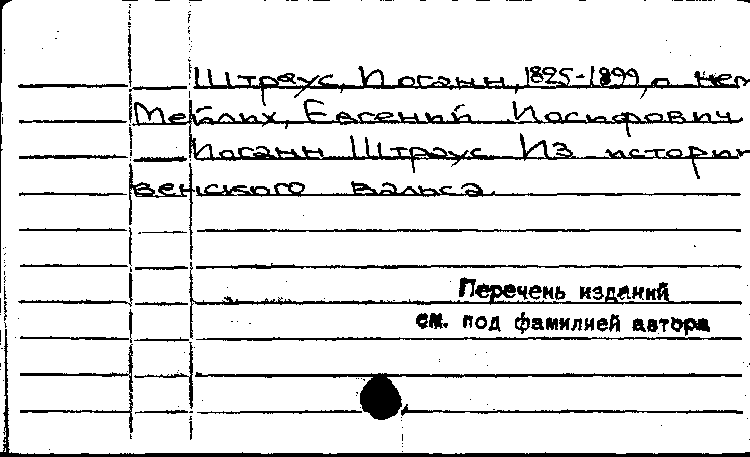 Штраус, Иоганн, 1825-1899, о нем
Мейлих, Евгений Иосифович
Иоганн Штраус. Из истории
венского вальса.
Перечень изданий
см. под фамилией автора